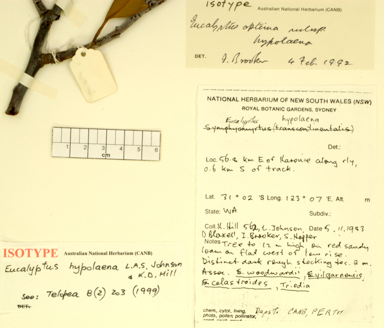 Isotype Australian National Herbarium (CANB)
Eucalyptus optima subsp.
hypolaena
DET. I. Brooker 4 Feb 1992
NATIONAL HERBARIUM OF NEW SOUTH WALES (NSW)
ROYAL BOTANIC GARDENS, SYDNEY
Eucalyptus hypolaena
Symphyomyrtus (transcontinentalis)
Det:
Loc 56.8 km E of Karonie along rly,
0.6 km S of track.
Lat. 31° 02 'S Long. 123° 07 'E Alt. m
State: WA Subdiv.:
Coll. K. Hill 562, L. Johnson, Date 5, 11, 1983
D Blaxell, I. Brooker, S. Hopper
Notes Tree to 12 m high on red sandy
loam on flat west of low rise.
Distinct dark rough stocking to 2 m.
Assoc. E. woodwardii, E. yilgarnensis,
E. celastroides, Triodia
chem, cytol, living,
photo, pollen, Dupl. to CANB, PERTH
ISOTYPE Australian National Herbarium (CANB)
Eucalyptus hypolaena L.A.S. Johnson
& K.D. Hill
See: Telopea 8(2) 203 (1999)
cm 1 2 3 4 5 6